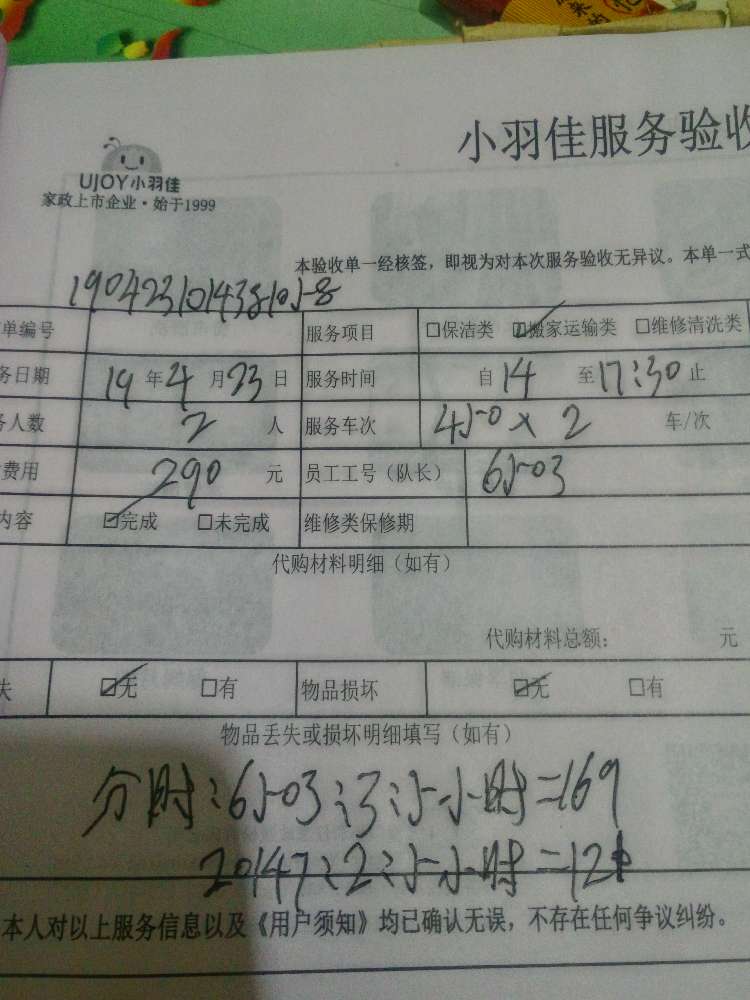 小羽佳服务验收
UJOY小羽佳
家政上市企业·始于1999
本验收单一经核签，即视为对本次服务验收无异议。本单一式
单编号 服务项目 □保洁类 ☑搬家运输类 □维修清洗类
务日期 19年4月23日 服务时间 自14至17:30止
务人数 2人 服务车次 450×2 车/次
费用 290元 员工工号（队长） 6503
内容 ☑完成 □未完成 维修类保修期
代购材料明细（如有）
代购材料总额： 元
失 ☑无 □有 物品损坏 ☑无 □有
物品丢失或损坏明细填写（如有）
分时:6503:3:5小时=169
20147:2:5小时=121
本人对以上服务信息以及《用户须知》均已确认无误，不存在任何争议纠纷。